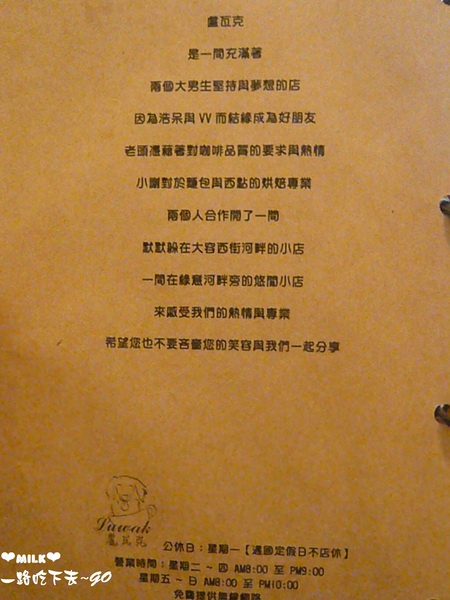 盧瓦克
是一間充滿著
兩個大男生堅持與夢想的店
因為浩呆與 VV 而結緣成為好朋友
老頭憑藉著對咖啡品質的要求與熱情
小謝對於麵包與西點的烘焙專業
兩個人合作開了一間
默默躲在大容西街河畔的小店
一間在綠意河畔旁的悠閒小店
來感受我們的熱情與專業
希望您也不要吝嗇您的笑容與我們一起分享
Luwak
盧瓦克
公休日：星期一【遇國定假日不店休】
營業時間：星期二 ~ 四 AM8:00 至 PM9:00
星期五 ~ 日 AM8:00 至 PM10:00
免費提供無線網路
❤MILK❤
一路吃下去~go